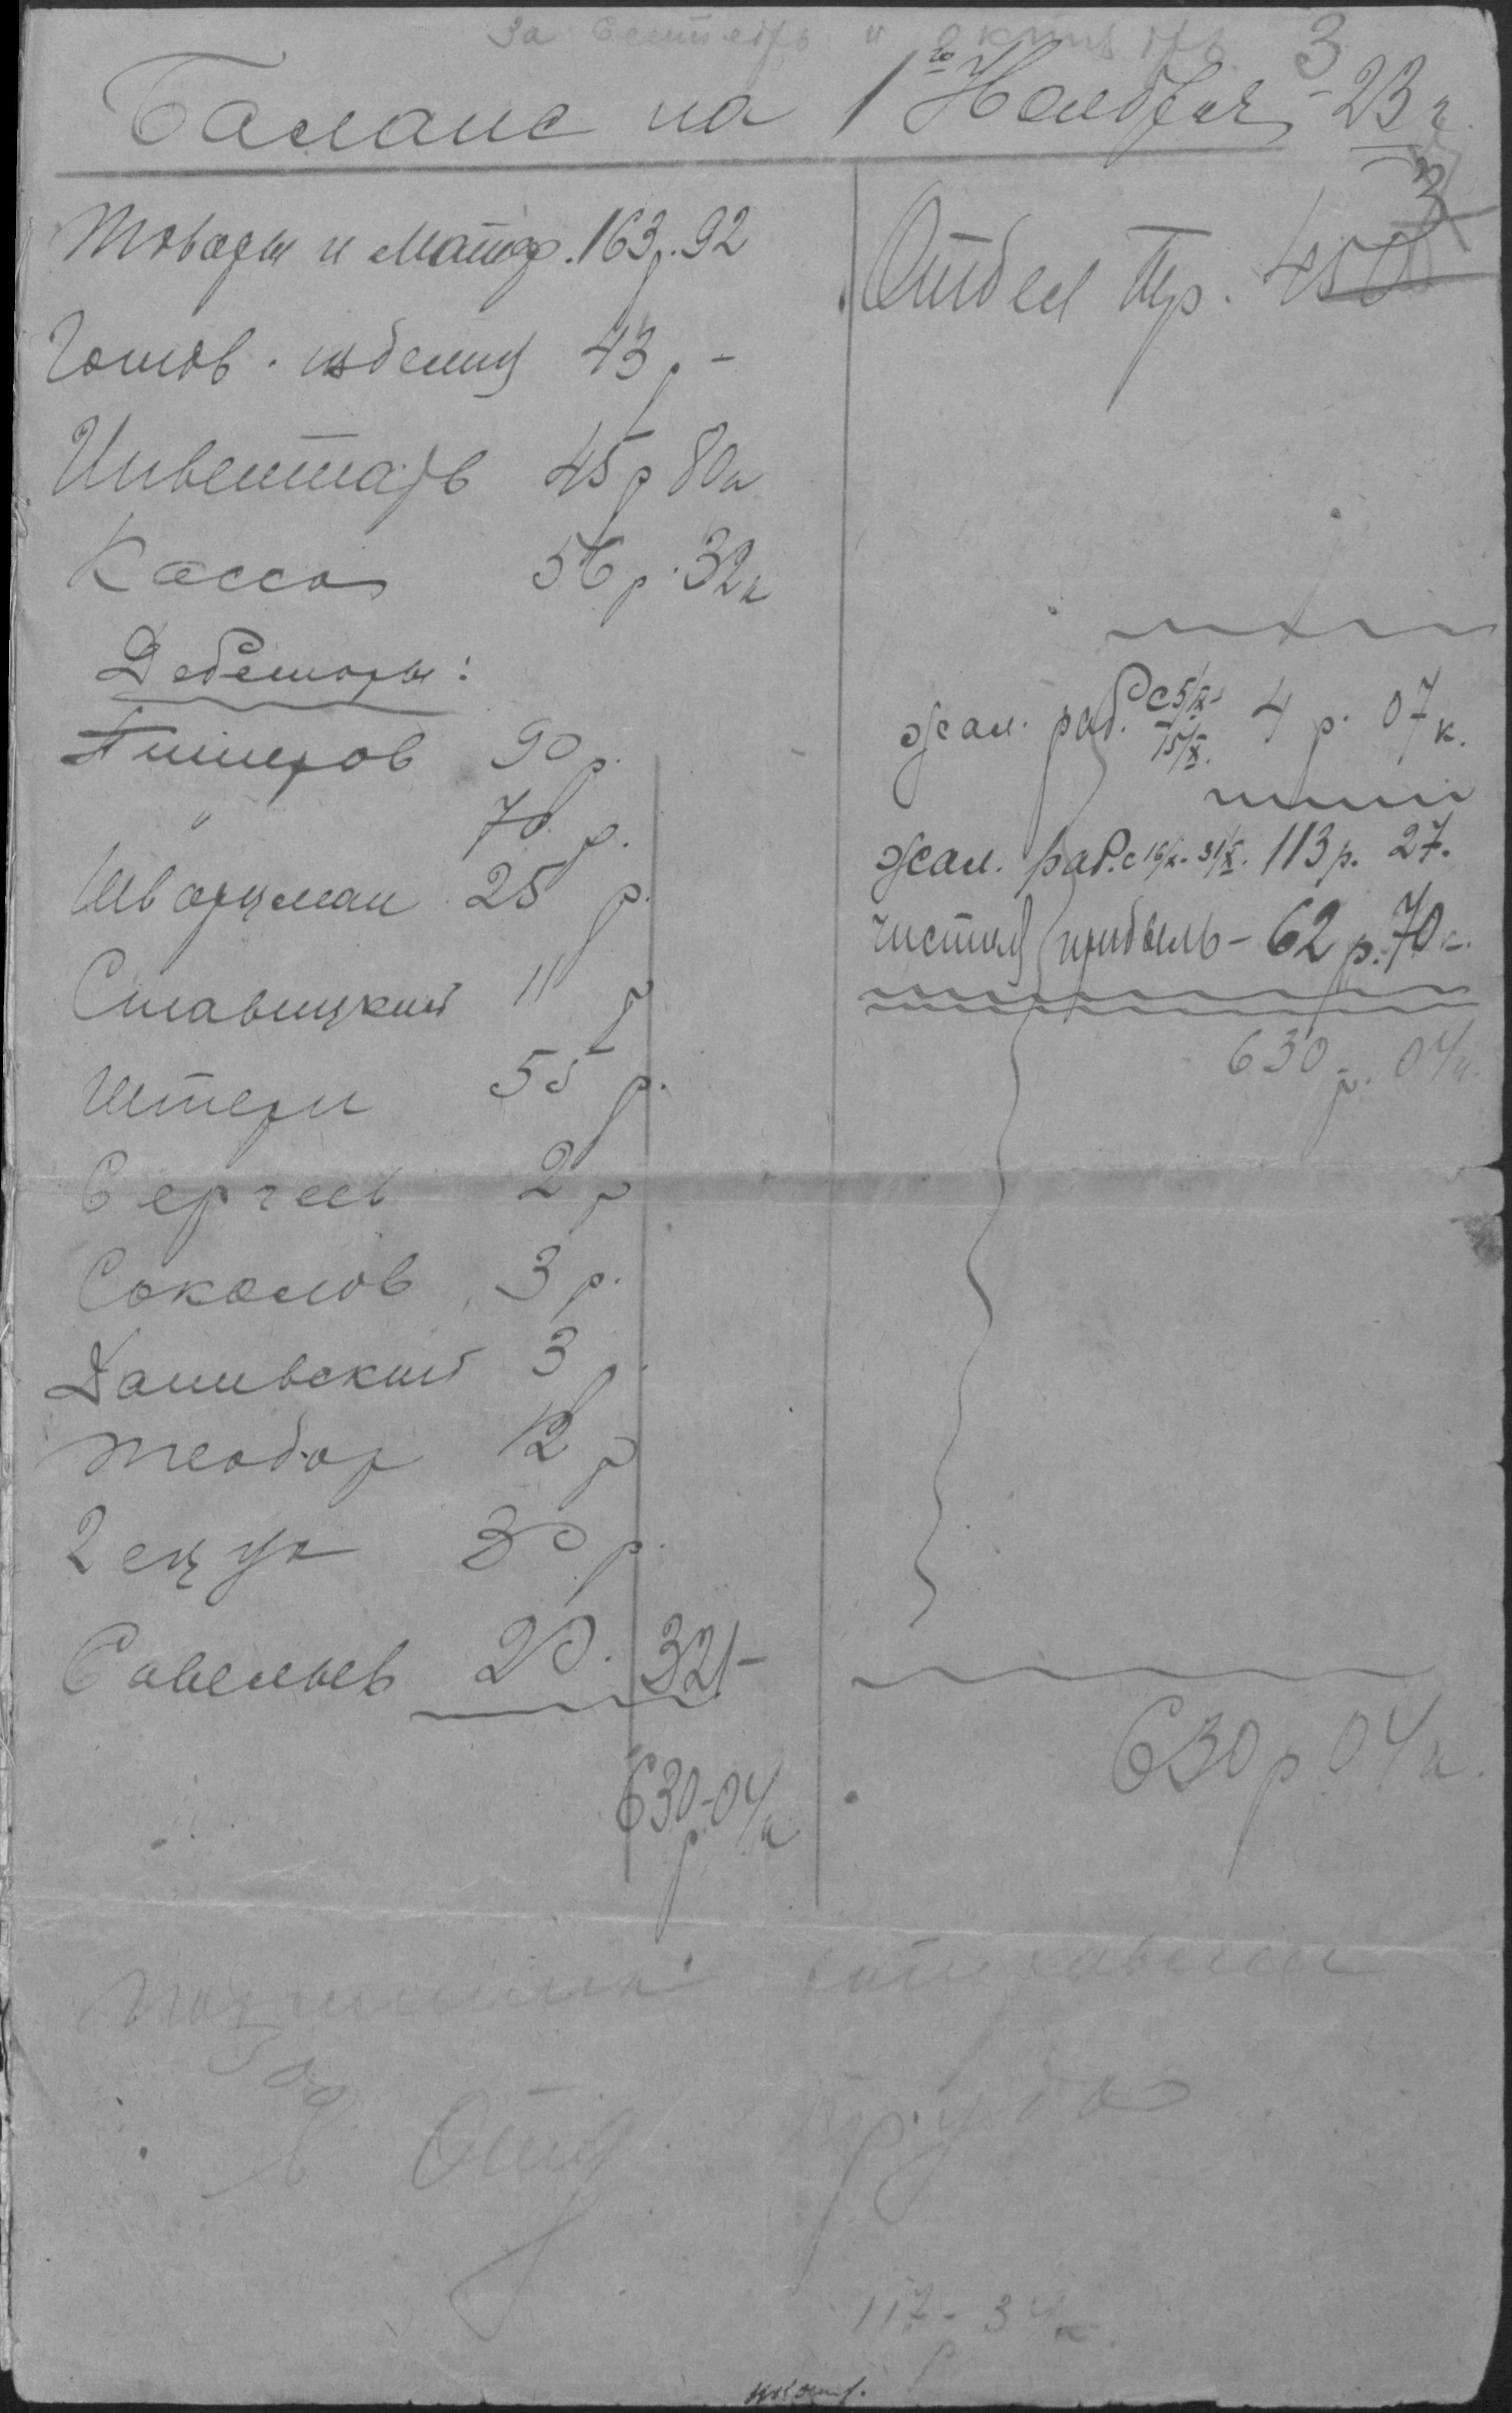 за Сентябрь и октябрь 3
Баланс на 1го Ноября - 23 г.
Товары и Матер. 163 р. 92
Готов. изделия 43 р. -
Инвентарь 45 р 80 к
Касса 56 р. 32 к
Дебеторы:
90 р.
" 70 р.
Шварцман 25 р.
Ставицкий 11 р
Штерн 55 р.
Сергеев 2 р
Соколов 3 р.
Данивский 3 р.
Теодор 12 р
30 р.
Савельев 20. 321 -
630 - 04 к
р.
Отдел Тр. 450
жал. раб. с 5/X - 15/X. 4 р. 07 к.
жал. раб. с 16/X - 31/X. 113 р. 27.
чистая прибыль - 62 р. 70 к.
630 р. 04 к.
630 р 04 к.
Отд. труда
117 - 34 к.
р